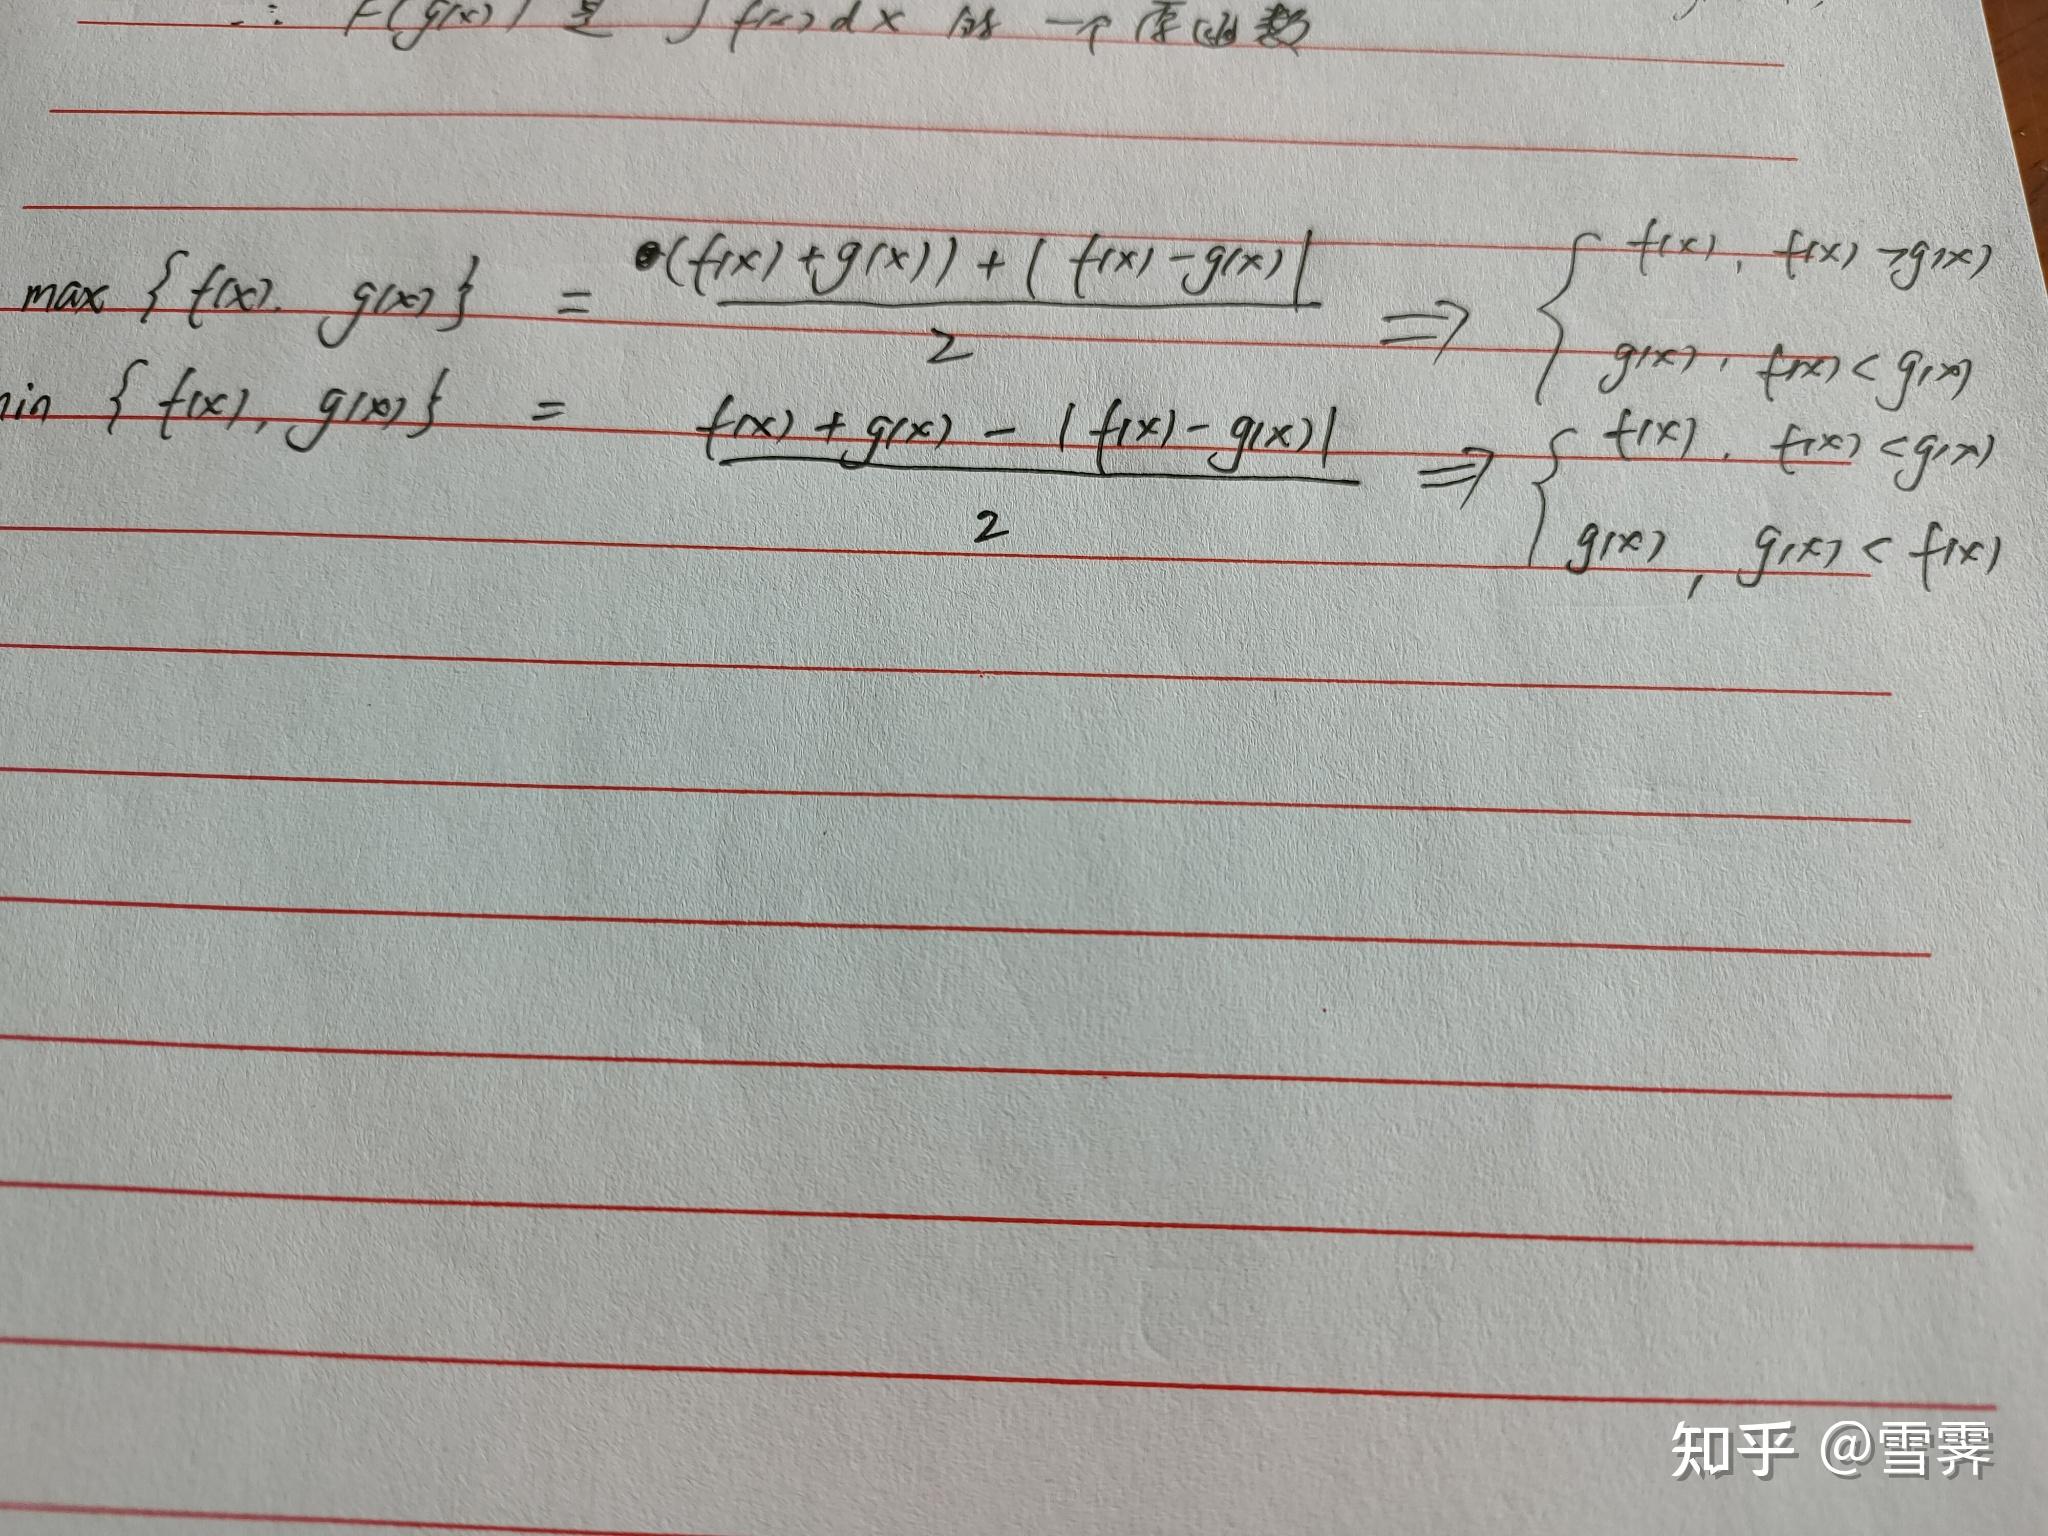 ∴ F(g(x)) 是 ∫ f(x) dx 的 一个 原函数
max { f(x). g(x) } = \frac{(f(x)+g(x)) + | f(x) - g(x) |}{2} ⇒ { f(x), f(x) > g(x)
g(x), f(x) < g(x)
min { f(x), g(x) } = \frac{f(x) + g(x) - | f(x) - g(x) |}{2} ⇒ { f(x), f(x) < g(x)
g(x), g(x) < f(x)
知乎 @雪霁